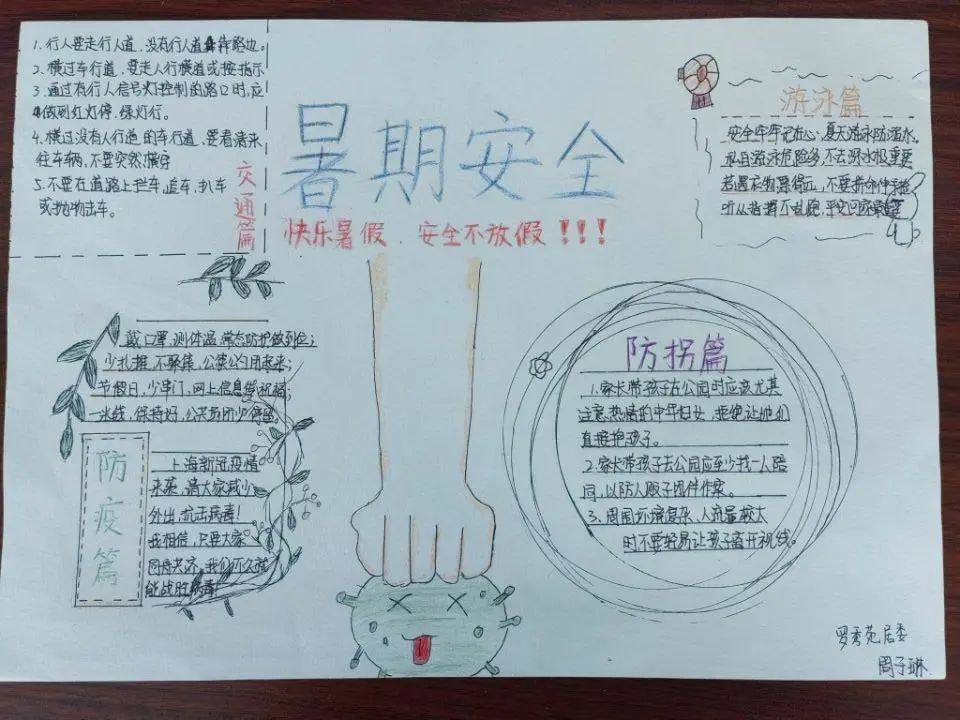 暑期安全
快乐暑假.安全不放假!!!
交通篇
1.行人要走行人道,没有行人道靠路边。
2.横过车行道,要走人行横道或按指示
3.通过有行人信号灯控制的路口时,应
做到红灯停、绿灯行。
4.横过没有人行道的车行道,要看清来
往车辆,不要突然横穿
5.不要在道路上拦车,追车,扒车
或抛物击车。
游泳篇
安全牢牢记在心.夏天游泳防溺水.
私自游泳危险多,不去深水极重要
若遇求物要得应,不要拆伴手
听从指挥不乱跑,平安回家
防疫篇
戴口罩,测体温,常态防护做到位;
少扎堆,不聚集,公筷公勺用起来;
节假日,少串门,网上信息
一米线,保持好,公共场所少停留
上海新冠疫情
来袭,请大家减少
外出,抗击病毒!
我相信,只要大家
同舟共济,我们不久就
能战胜病毒!
防拐篇
1.家长带孩子在公园时应该尤其
注意热情的中年妇女,拒绝让她们
直接抱孩子。
2.家长带孩子去公园应至少找一人陪
同,以防人贩子团伙作案。
3、周围环境复杂、人流量较大
时不要轻易让孩子离开视线。
罗秀苑居委
周子琳